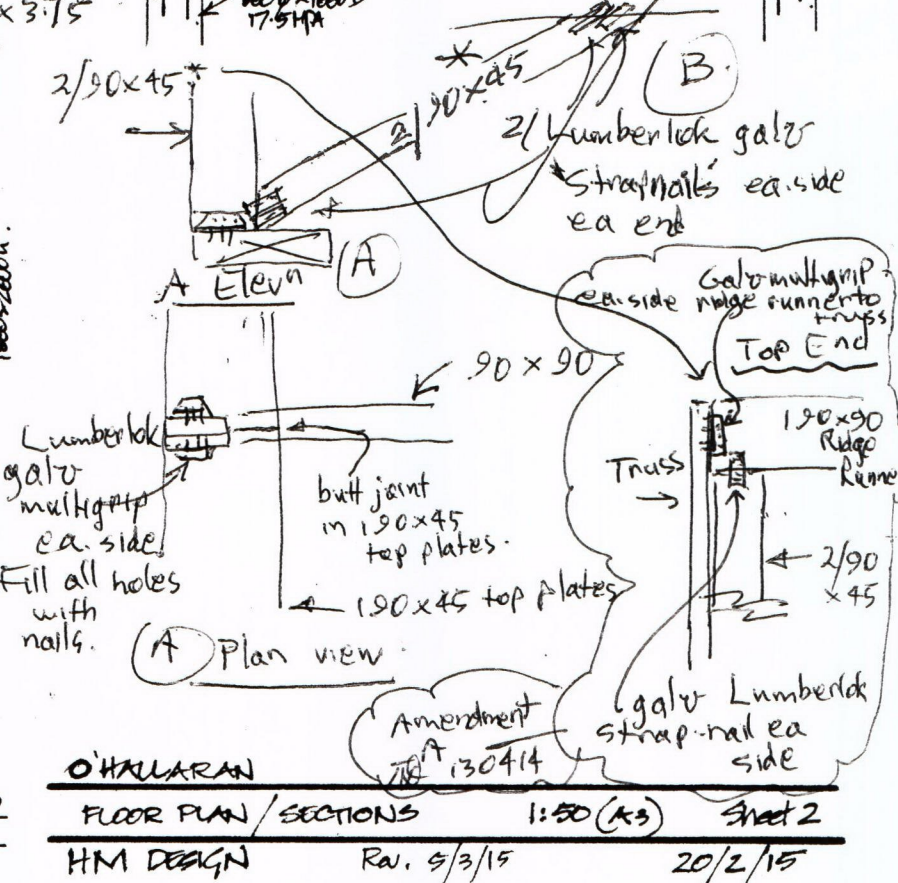 x 3.75
17.5 MPA
2/90x45 *
*
2/90x45
B.
2/Lumberlok galv
Strapnails ea.side
ea end
A Elevn
A
Galv multigrip
ea.side ridge runner to
truss
Top End
90 x 90
190x90
Ridge
Runne
Truss
Lumberlok
galv
multigrip
ea. side.
Fill all holes
with
nails.
butt joint
in 190x45
top plates.
2/90
x45
190x45 top plates
A Plan view
galv Lumberlok
strap-nail ea
side
Amendment
A 130414
O'HALLARAN
FLOOR PLAN / SECTIONS 1:50 (A3) Sheet 2
HM DESIGN Rev. 5/3/15 20/2/15